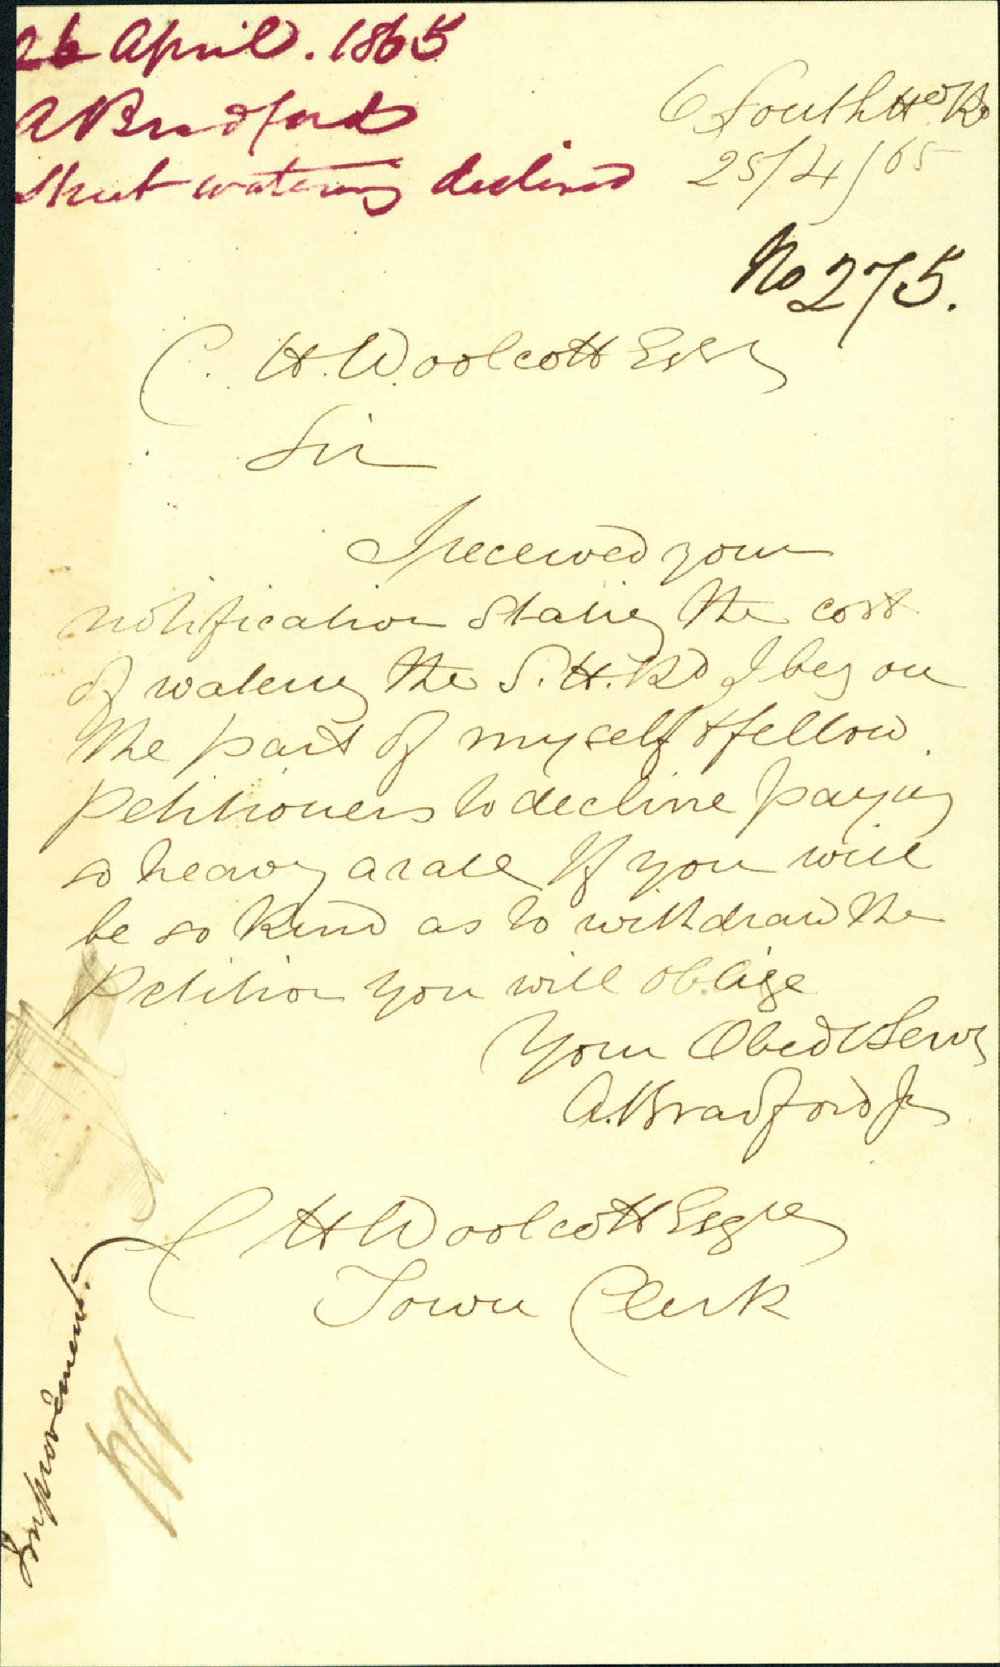 26 April. 1865
A Bradford
Street watering declined
6 South Hd Rd
25/4/65
No 275.
C. H. Woolcott Esqr
Sir
I received your
notification stating the cost
of watering the S. H. Rd I beg on
the part of myself & fellow
Petitioners to decline paying
so heavy a rate If you will
be so kind as to withdraw the
Petition you will oblige
Your Obedt Servt
A. Bradford Jr
C H Woolcott Esqre
Town Clerk
Improvement.